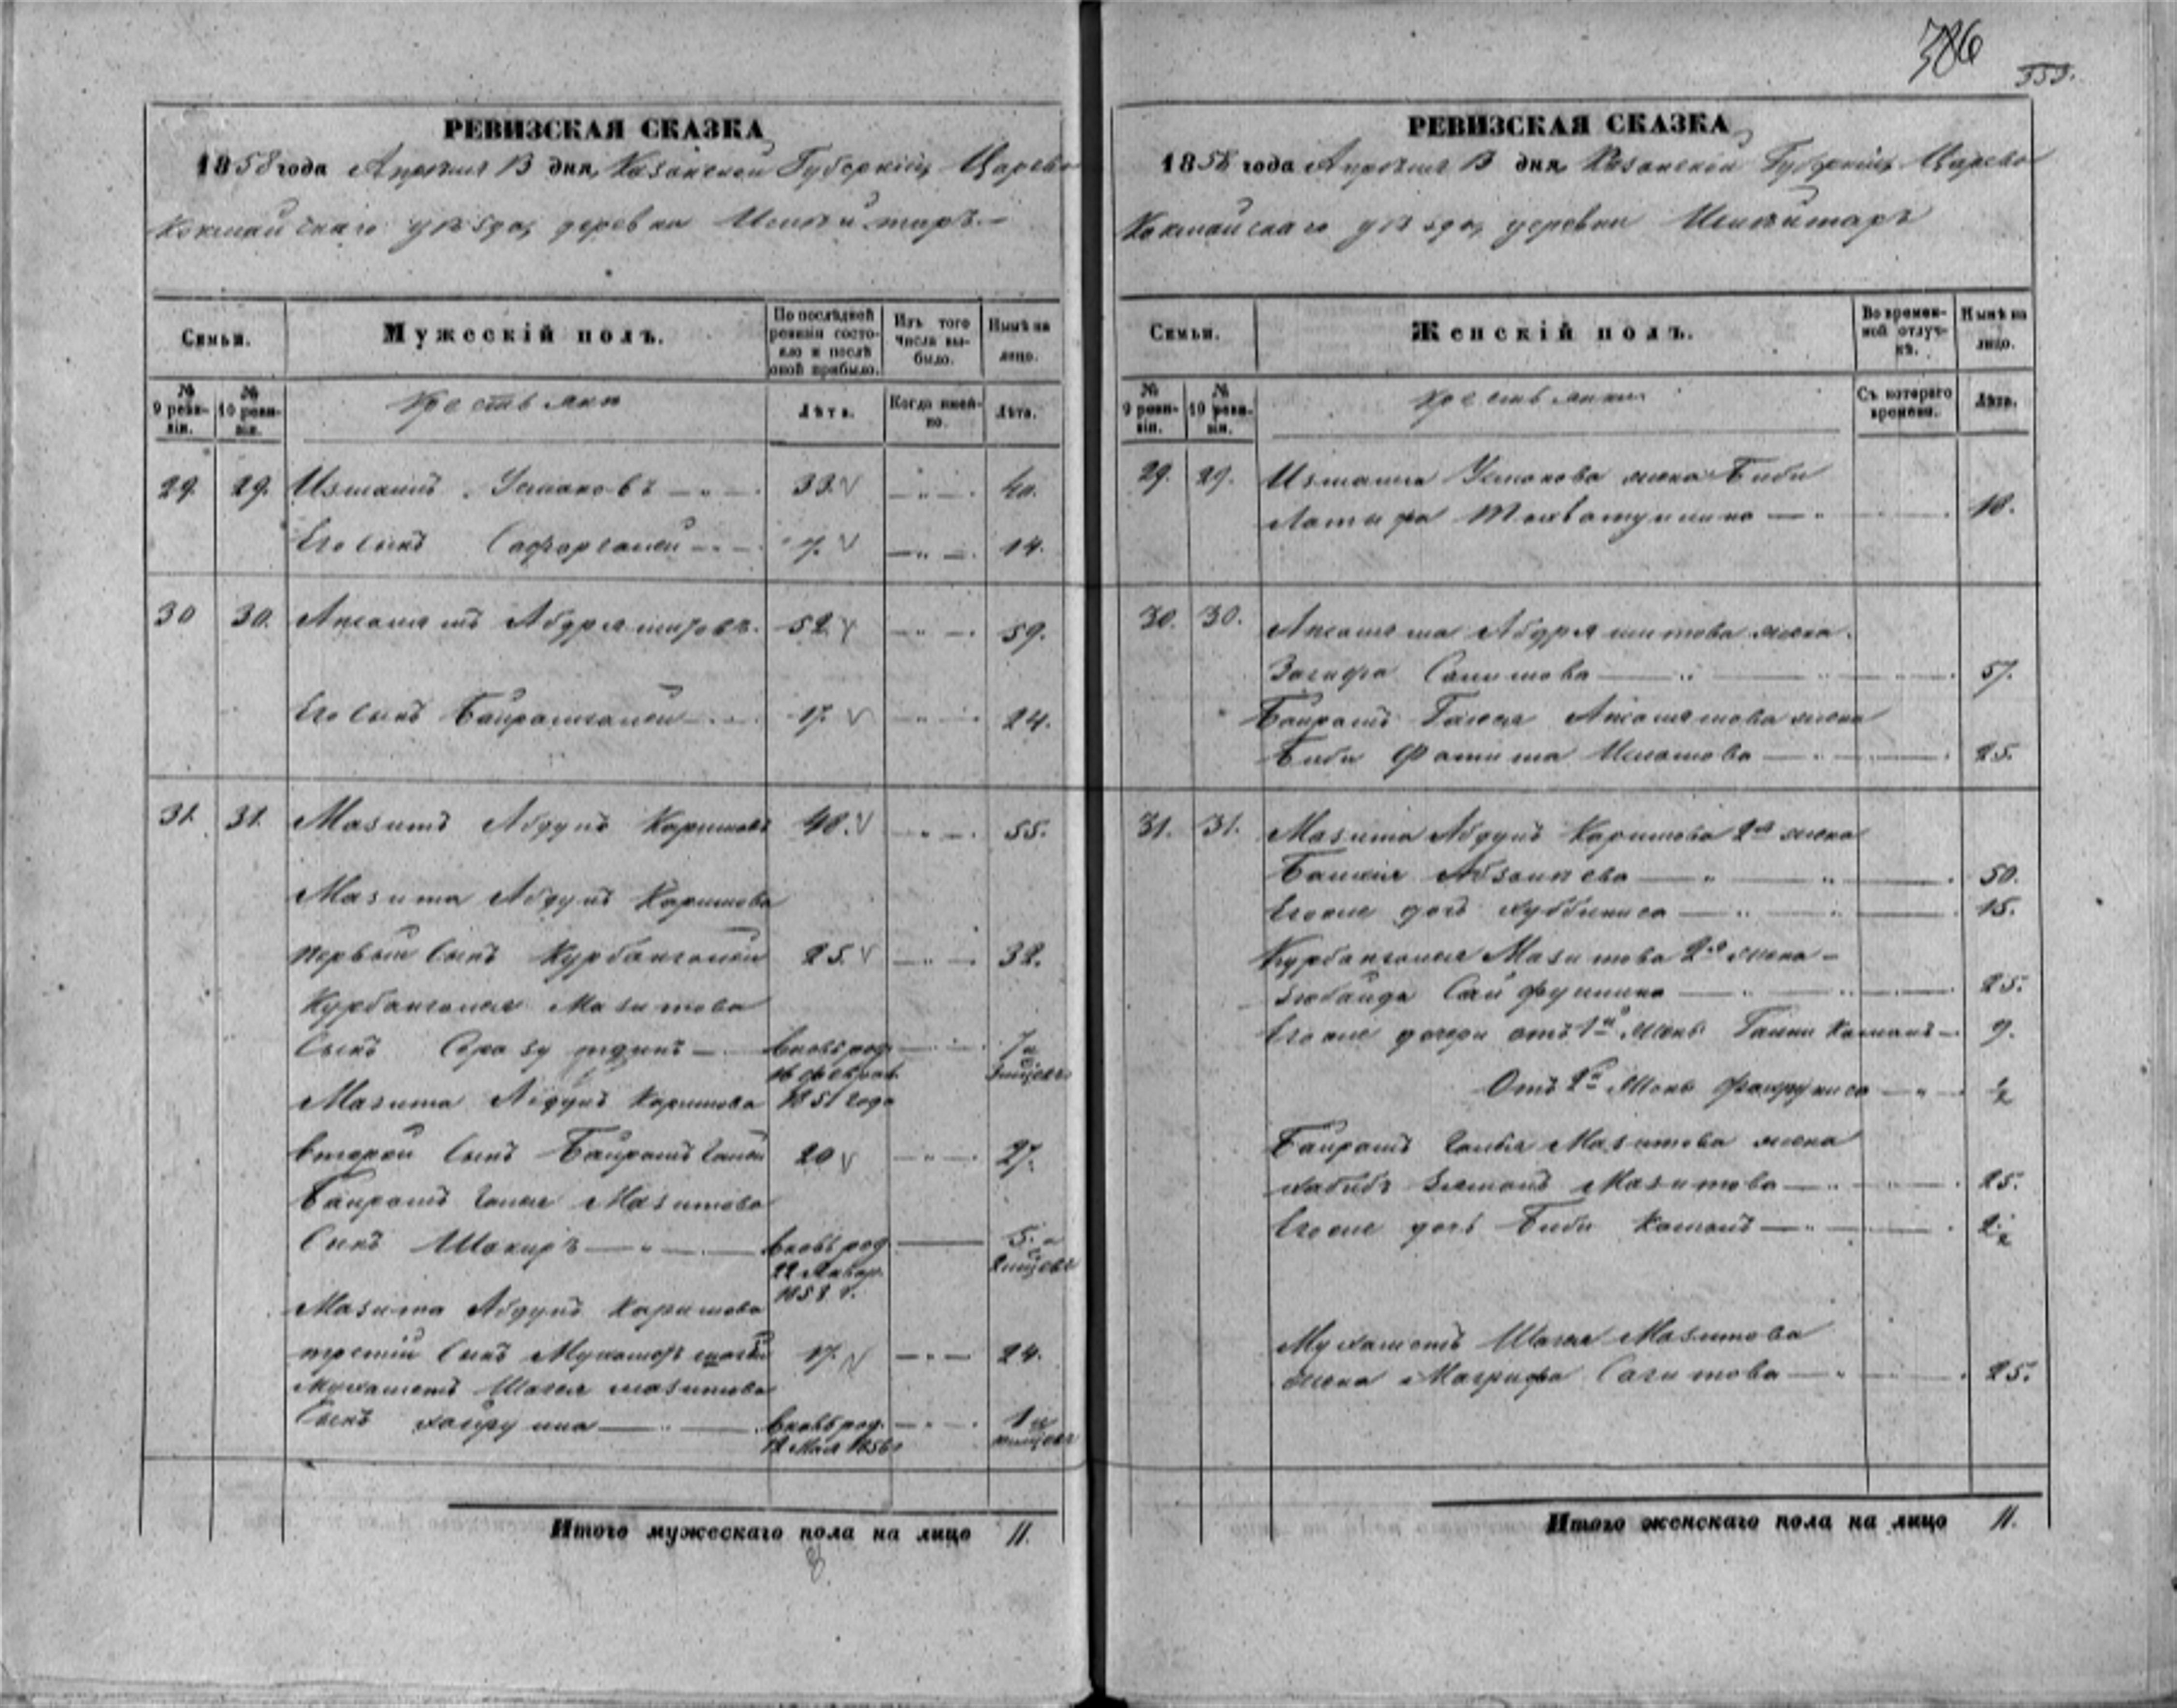 386
555.
РЕВИЗСКАЯ СКАЗКА
1858 года Апреля 13 дня, Казанской Губернiи, Царево
Кокшайскаго уѣзда, деревни
Семьи.
Мужескiй полъ.
По послѣдней ревизiи состояло и послѣ оной прибыло.
Изъ того числа выбыло.
Нынѣ на лицо.
№ 9 ревизiи.
№ 10 ревизiи.
Крестьяне
Лѣта.
Когда именно.
Лѣта.
29. 29. Измаилъ Усмановъ 33. 40.
Его сынъ 7. 14.
30 30. Абдряшитовъ. 52 59.
Его сынъ Байрамгалей 17. 24.
31. 31. Мазитъ Абдулъ Каримовъ 48. 55.
Мазита Абдулъ Каримова
первый сынъ Курбангалей 25. 32.
Курбангалея Мазитова
сынъ вновь род. 7 и
16 феврал. 3 мѣсяца
Мазита Абдулъ Каримова 1851 года
второй сынъ Байрамъ Галей 20 27.
Байрамъ Галея Мазитова
сынъ Шакиръ вновь род. 5. и
22 Январ. 2 мѣсяца
1853 г.
Мазита Абдулъ Каримова
третiй сынъ 17. 24.
Мухаметъ Шагея Мазитова
сынъ вновь род. 1 и
12 Мая 1856 мѣсяцевъ
Итого мужескаго пола на лицо 11.
РЕВИЗСКАЯ СКАЗКА
1858 года Апреля 13 дня, Казанской Губернiи, Царево
Кокшайскаго уѣзда, деревни
Семьи.
Женскiй полъ.
Во временной отлучкѣ.
Нынѣ на лицо.
№ 9 ревизiи.
№ 10 ревизiи.
Крестьянки
Съ котораго времени.
Лѣта.
29. 29. Измаила Усманова жена Биби
Латифа 18.
30. 30. Абдряшитова жена.
Загифа Салимова 57.
Байрамъ Галея жена
Биби Фатима 25.
31. 31. Мазита Абдулъ Каримова 2я жена
50.
Егоже дочь 15.
Курбангалея Мазитова 2я жена
Зюбайда Сайфуллина 25.
Егоже дочери отъ 1й жены 9.
Отъ 2й жены ½
Байрамъ Галея Мазитова жена
Мазитова 25.
Егоже дочь Биби Камалъ 2½
Мухаметъ Шагея Мазитова
жена Магрифа Сагитова 25.
Итого женскаго пола на лицо 11.